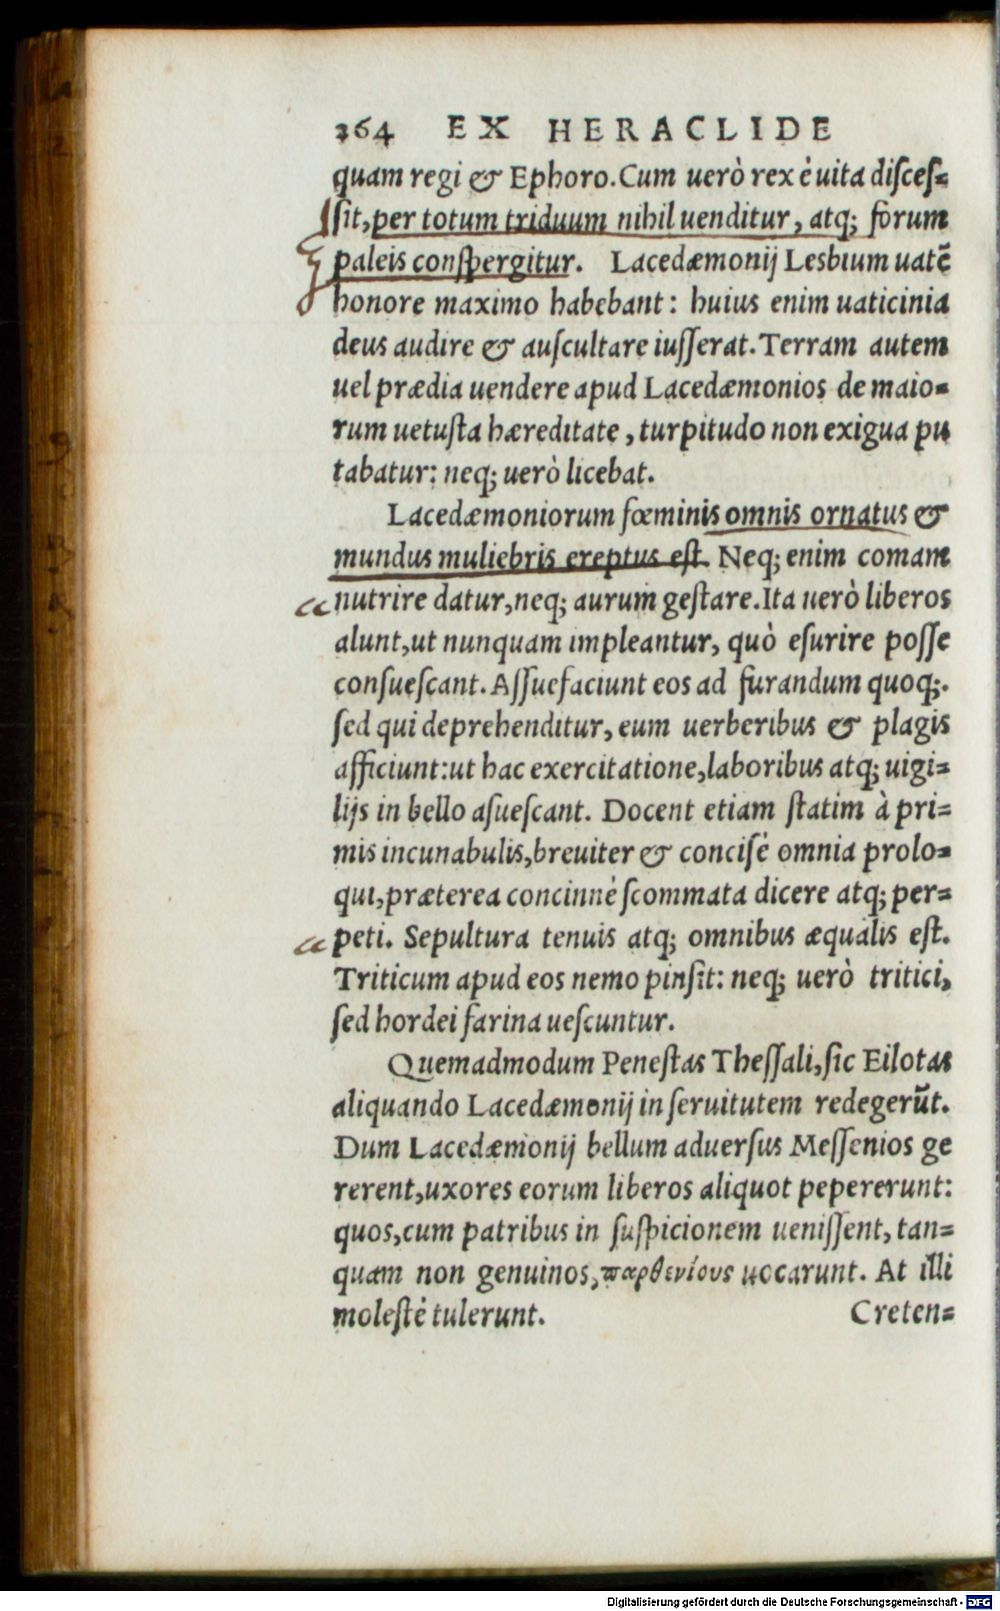 264 EX HERACLIDE
quam regi & Ephoro. Cum uerò rex è uita disces=
sit, per totum triduum nihil uenditur, atq; forum
paleis conspergitur. Lacedæmonij Lesbium uatē
honore maximo habebant: huius enim uaticinia
deus audire & auscultare iusserat. Terram autem
uel prædia uendere apud Lacedæmonios de maio=
rum uetusta hæreditate, turpitudo non exigua pu
tabatur: neq; uerò licebat.
Lacedæmoniorum fœminis omnis ornatus &
mundus muliebris ereptus est. Neq; enim comam
nutrire datur, neq; aurum gestare. Ita uerò liberos
alunt, ut nunquam impleantur, quò esurire posse
consuescant. Assuefaciunt eos ad furandum quoq;.
sed qui deprehenditur, eum uerberibus & plagis
afficiunt: ut hac exercitatione, laboribus atq; uigi=
lijs in bello asuescant. Docent etiam statim à pri=
mis incunabulis, breuiter & concisè omnia prolo=
qui, præterea concinnè scommata dicere atq; per=
peti. Sepultura tenuis atq; omnibus æqualis est.
Triticum apud eos nemo pinsit: neq; uerò tritici,
sed hordei farina uescuntur.
Quemadmodum Penestas Thessali, sic Eilotas
aliquando Lacedæmonij in seruitutem redegerūt.
Dum Lacedæmonij bellum aduersus Messenios ge
rerent, uxores eorum liberos aliquot pepererunt:
quos, cum patribus in suspicionem uenissent, tan=
quam non genuinos, παρθενίους uocarunt. At illi
molestè tulerunt. Creten=
Digitalisierung gefördert durch die Deutsche Forschungsgemeinschaft - DFG